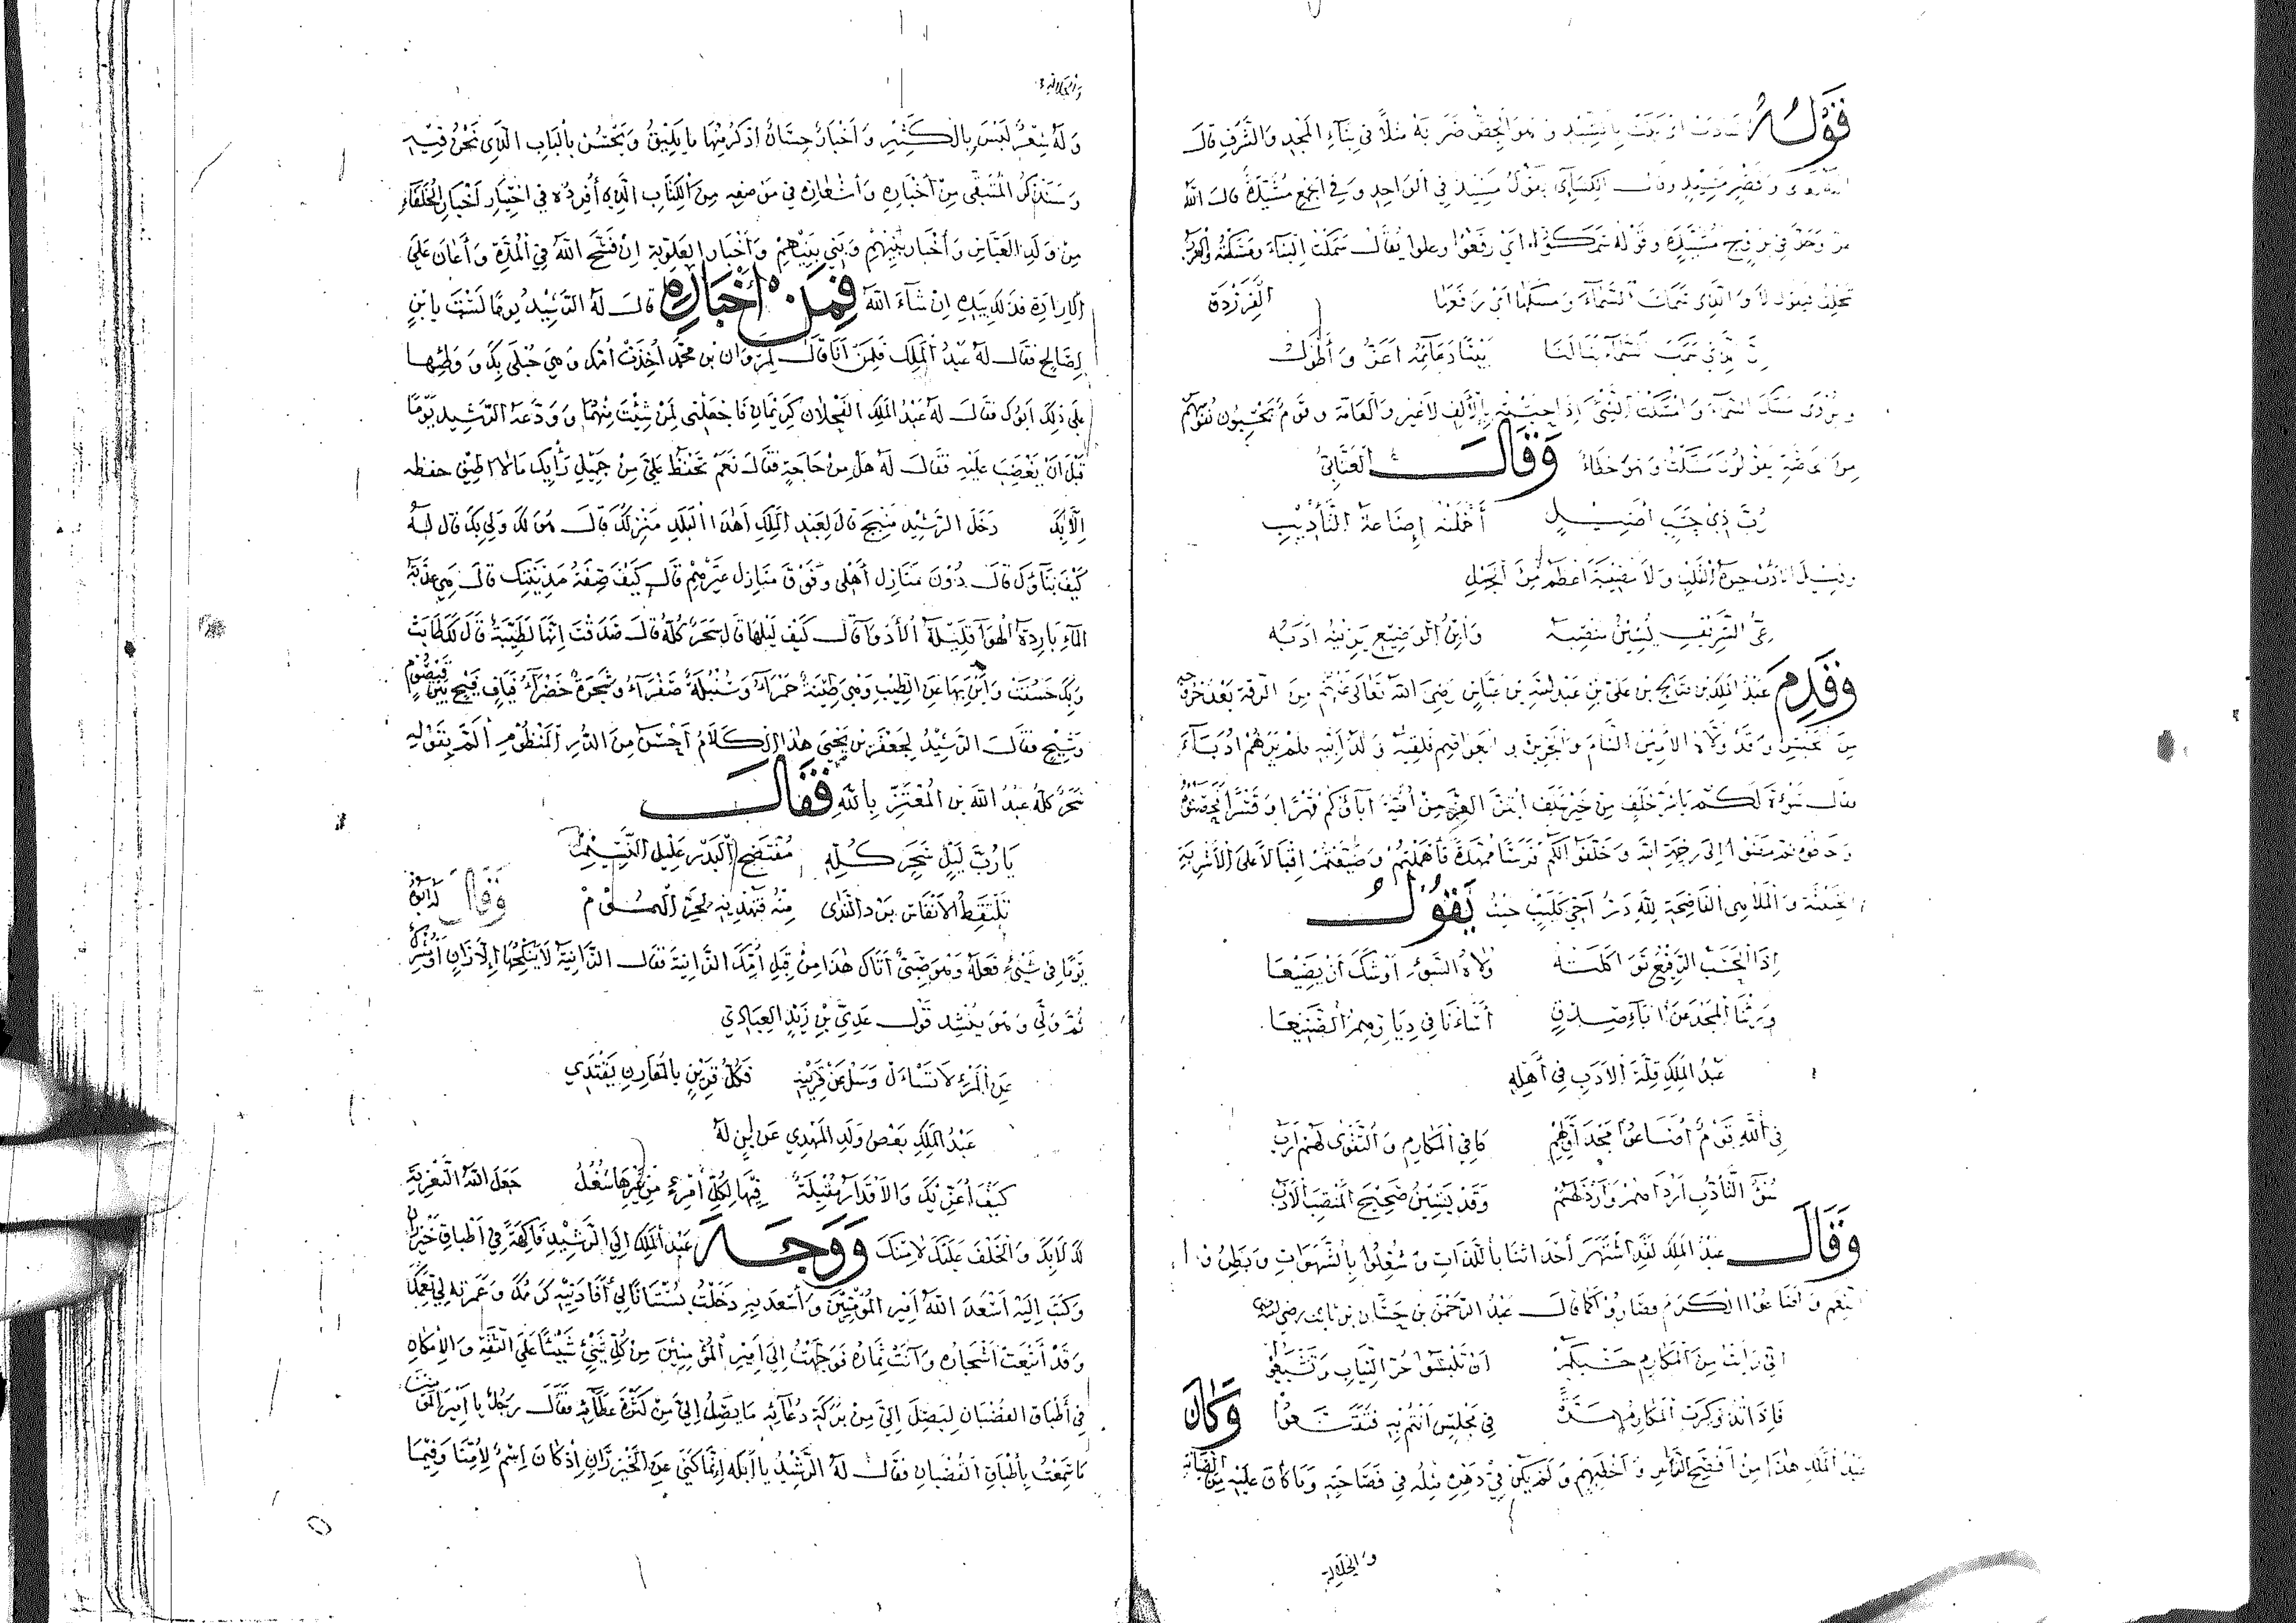 فَقَوْلُهُ بِالشِّيدِ وَهُوَ الْجِصُّ ضَرَبَهُ مَثَلًا فِي بِنَاءِ الْمَجْدِ وَالشَّرَفِ قَالَ
وَقَصْرٍ مَشِيدٍ وقال الكسائي يقول مَشِيد في الواحد وَفي الجمع مُشَيَّدَة قال الله
عز وجل في بروج مُشَيَّدَة وقوله سَمَكُوا اي رفعوا وعلوا يُقال سَمَكْتُ البناء
تحلف تقول لا وَالذي سمك السَّماء وسمكها اي رفعها الفرزدق
إنَّ الذي سَمَكَ السَّمَاءَ بَنَى لَنَا بَيْتًا دَعَائِمُهُ أَعَزُّ وَأَطْوَلُ
بالألف لا غير والعامة وقوم يحسبون نفوسهم
مِنَ يقولون وَهو خطاء وَقَالَ العَتَّابِيُّ
رُبَّ ذِي حَسَبٍ أَصِيلٍ أَخْمَلَتْهُ إِضَاعَةُ التَّأْدِيبِ
وَقيل الأدب حيوة القلب ولا مصيبة أعظم مِنَ الجهل
الشريف يُشين منصبه وَابنُ الوضيع يزينه أدبه
وَقَدِمَ عبدُ الملك بن صالح بن علي بن عبد الله بن عباس رضي الله تعالى عنهم من الرقة بعد خروجه
مِن محبسه وقد ولاه الأمين الشام وَالجزيرة والعواصم فلقيه ولد أبيه فلم يرهم أدباء
فقال سَوْءَة لكم يابني خلف من خير سلف ابتز العز من أمية آباؤكم قهرًا وَقسرًا
مَضَوْا إلى رحمة الله وَخلفوا لكم فرشًا ممهدة فأهملتم وضيعتم إقبالا على الأشربة
وَالملاهي الفاضحة لله در أخي كليب حيث يَقُولُ
إِذَا الحَسَبُ الرَّفِيعُ تَوَاكَلَتْهُ وُلاةُ السُّوءِ أَوْشَكَ أَنْ يَضِيعَا
وَرِثْنَا المَجْدَ عَنْ آبَاءِ صِدْقٍ أَسَأْنَا فِي دِيَارِهِمُ الصَّنِيعَا
عَبْدُ المَلِكِ قِلَّةَ الأَدَبِ فِي أَهْلِهِ
فِي اللهِ قَوْمٌ أَضَاعُوا مَجْدَ أَوَّلِهِمْ مَا فِي المَكَارِمِ وَالتَّقْوَى لَهُمْ أَرَبُ
سُوءُ التَّأَدُّبِ أَرْدَاهُمْ وَأَرْذَلَهُمْ وَقَدْ يَشِينُ صَحِيحَ المَنْصِبِ الأَدَبُ
وَقَالَ عبدُ الملك لقد اشتهر أحداثنا باللذات وَشغلوا بالشهوات
النعم وَأضاعوا الكرم فصاروا كما قال عبد الرحمن بن حسان بن ثابت رضي الله عنه
إِنِّي رَأَيْتُ مِنَ المَكَارِمِ حَسْبَكُمْ أَنْ تَلْبَسُوا حُرَّ الثِّيَابِ وَتَشْبَعُوا
فَإِذَا تُذُوكِرَتِ المَكَارِمُ مَرَّةً فِي مَجْلِسٍ أَنْتُمْ بِهِ فَتَقَنَّعُوا وَكَانَ
عبد الملك هذا من أفصح الناس وَأخطبهم ولم يكن في دهره مثله في فصاحته وَما كان عليه من
وَالجلالة
وَالجلالة
وَلَهُ شعرٌ ليس بالكثير وَأخبارٌ حسانٌ أذكر منها ما يليق وَيحسن بالباب الذي نحن فيه
وَسنذكر المتبقى من أخباره وَأشعاره في موضعه من الكتاب الذي أُفرده في اختيار أخبار الخلفاء
من ولد العباس وَأخبار بنيهم وَبني بنيهم وَأخبار العلوية إن فسح الله في المدة وَأعان على
الإرادة فذلك بيده إن شاء الله فَمِنْ أَخْبَارِهِ قال له الرشيد يومًا لست بابن
لصالح فقال له عبد الملك فلمن أنا قال لمروان بن محمد أُخذت أمك وهي حبلى بك ووطئها
على ذلك أبوك فقال له عبد الملك الفحلان كريمان فاجعلني لمن شئت منهما وَودعه الرشيد يومًا
قبل أن يغضب عليه فقال له هل من حاجة فقال نعم تحفظ علي من جميل رأيك ما لا أطيق حفظه
إلا بك دخل الرشيد منبج قال لعبد الملك أهذا البلد منزلك قال هو لك ولي بك قال له
كيف بناؤك قال دون منازل أهلي وفوق منازل غيرهم قال كيف صفة مدينتك قال هي عذبة
الماء باردة الهوا قليلة الأدوا قال كيف ليلها قال سحر كله قال صدقت إنها لطيبة قال لك طابت
وبك حسنت وَأين بها عن الطيب وهي طينة حمراء وَسنبلة صفراء وشجرة خضراء فياف فيح بين قيصوم
وشيح فقال الرشيد لجعفر بن يحيى هذا الكلام أحسن من الدر المنظوم ألم بقوله
سحر كله عبد الله بن المعتز بالله فَقَالَ
يَا رُبَّ لَيْلٍ سَحَرٍ كُلِّهِ مُفْتَضِحِ البَدْرِ عَلِيلِ النَّسِيمْ
تَلْتَقِطُ الأَنْفَاسُ بَرْدَ النَّدَى مِنْهُ فَتَهْدِيهِ لِحَرِّ الهُمُومْ وَقَالَ لَهُ ابنُهُ
يَومًا في شيء فعله وهو صبي أتاك هذا من قبل أمك الزانية فقال الزانية لا ينكحها إلا زان أو مشرك
ثم ولى وهو ينشد قول عدي بن زيد العبادي
عَنِ المَرْءِ لَا تَسْأَلْ وَسَلْ عَنْ قَرِينِهِ فَكُلُّ قَرِينٍ بِالمُقَارِنِ يَقْتَدِي
عبد الملك بعض ولد المهدي عن ابن له
كَيْفَ أُعَزِّيكَ وَالأَقْدَارُ مُقْبِلَةٌ فِيهَا لِكُلِّ امْرِئٍ مِنْ غَيْرِهَا شُغُلُ جعل الله التعزية
لك لا بك وَالخلف عليك لا منك وَوَجَّهَ عبد الملك إلى الرشيد فاكهة في أطباق خيزران
وَكتب إليه أسعد الله أمير المؤمنين وَأسعد به دخلت بستانًا لي أفادنيه كرمك وعمرته لي نعمك
وَقد أينعت أشجاره وَآنت ثماره فوجهت إلى أمير المؤمنين من كل شيء شيئًا على الثقة والإمكان
في أطباق القضبان ليصل إلي من بركة دعائه ما يصل إلي من كثرة عطائه فقال رجل يا أمير المؤمنين
ما سمعت بأطباق القضبان فقال له الرشيد يا أبله إنما كنى عن الخيزران إذ كان اسم لأمنا وفيما